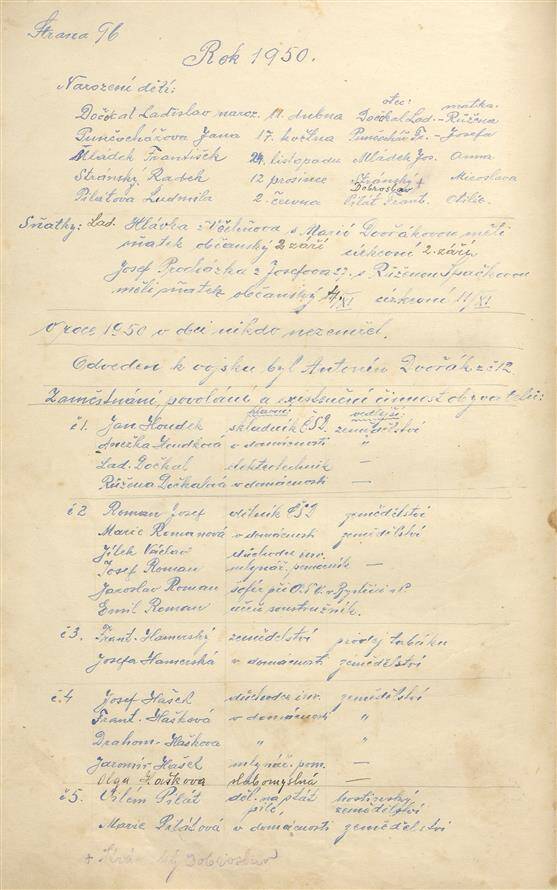 Strana 96
Rok 1950.
Narození dětí: otec: matka.
Dočkal Ladislav naroz. 11. dubna Dočkal Lad. - Růžena
Punčochářova Jana 17. května Punčochář Fr. - Josefa
Mládek František 24. listopadu Mládek Jos. Anna
Stránský Radek 12 prosince Stránský + Miroslava
Dobroslav
Pilátova Ludmila 2. června Pilát Frant. Otilie.
Sňatky: Lad. Hlávka z s Marií Dvořákovou měli
sňatek občanský 2 září církevní 2. září.
Josef Procházka z Josefova s Růženou Špačkovou
měli sňatek občanský 14/XI církevní 11/XI.
V roce 1950 v obci nikdo nezemřel.
Odveden k vojsku byl Antonín Dvořák z č 12.
Zaměstnání, povolání a existenční činnost obyvatelů:
hlavní: vedlejší:
č 1. Jan Houdek skladník ČSD. zemědělství
Anežka Houdková v domácnosti "
Lad. Dočkal elektrotechnik —
Růžena Dočkalová v domácnosti —
č 2 Roman Josef dělník ČSD zemědělství
Marie Romanová v domácnosti zemědělství
Jílek Václav důchodce inv.
Josef Roman mlynář. pomocník —
Jaroslav Roman šofér při O.N.V. v Bystřici n/P
Emil Roman učeň soustružník.
č 3. Frant. Hamerský zemědělství prodej tabáku
Josefa Hamerská v domácnosti zemědělství
č. 4 Josef Hašek důchodce inv. zemědělství
Frant. Hašková v domácnosti "
Drahom. Haškova " "
Jaromír Hašek mlynář. pom. —
Olga Haškova slabomyslná —
č 5. Vilém Pilát děl. na stát hostivský
pile. zemědělství
Marie Pilátová v domácnosti zemědělství
+ Dobroslav